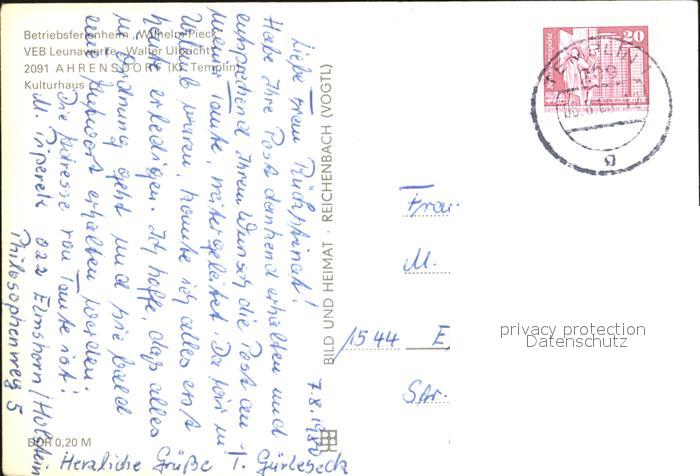 Betriebsferienheim "Wilhelm Pieck"
VEB Leunawerke "Walter Ulbricht"
2091 AHRENSDORF (Kr. Templin)
Kulturhaus
BILD UND HEIMAT · REICHENBACH (VOGTL)
DDR 0,20 M
7.8.1980
Liebe Frau
Habe Ihre Post dankend erhalten und
entsprechend Ihrem Wunsch die Post an
meine Tante weitergeleitet. Da wir in
Urlaub waren, konnte ich alles erst
heute erledigen. Ich hoffe, daß alles
in Ordnung geht und Sie bald
eine Antwort erhalten werden.
Die Adresse von Tante ist:
M. 022 Elmshorn/Holstein
Philosophenweg 5
Herzliche Grüße T.
20
Frau
M.
1544 E
Str.
privacy protection
Datenschutz